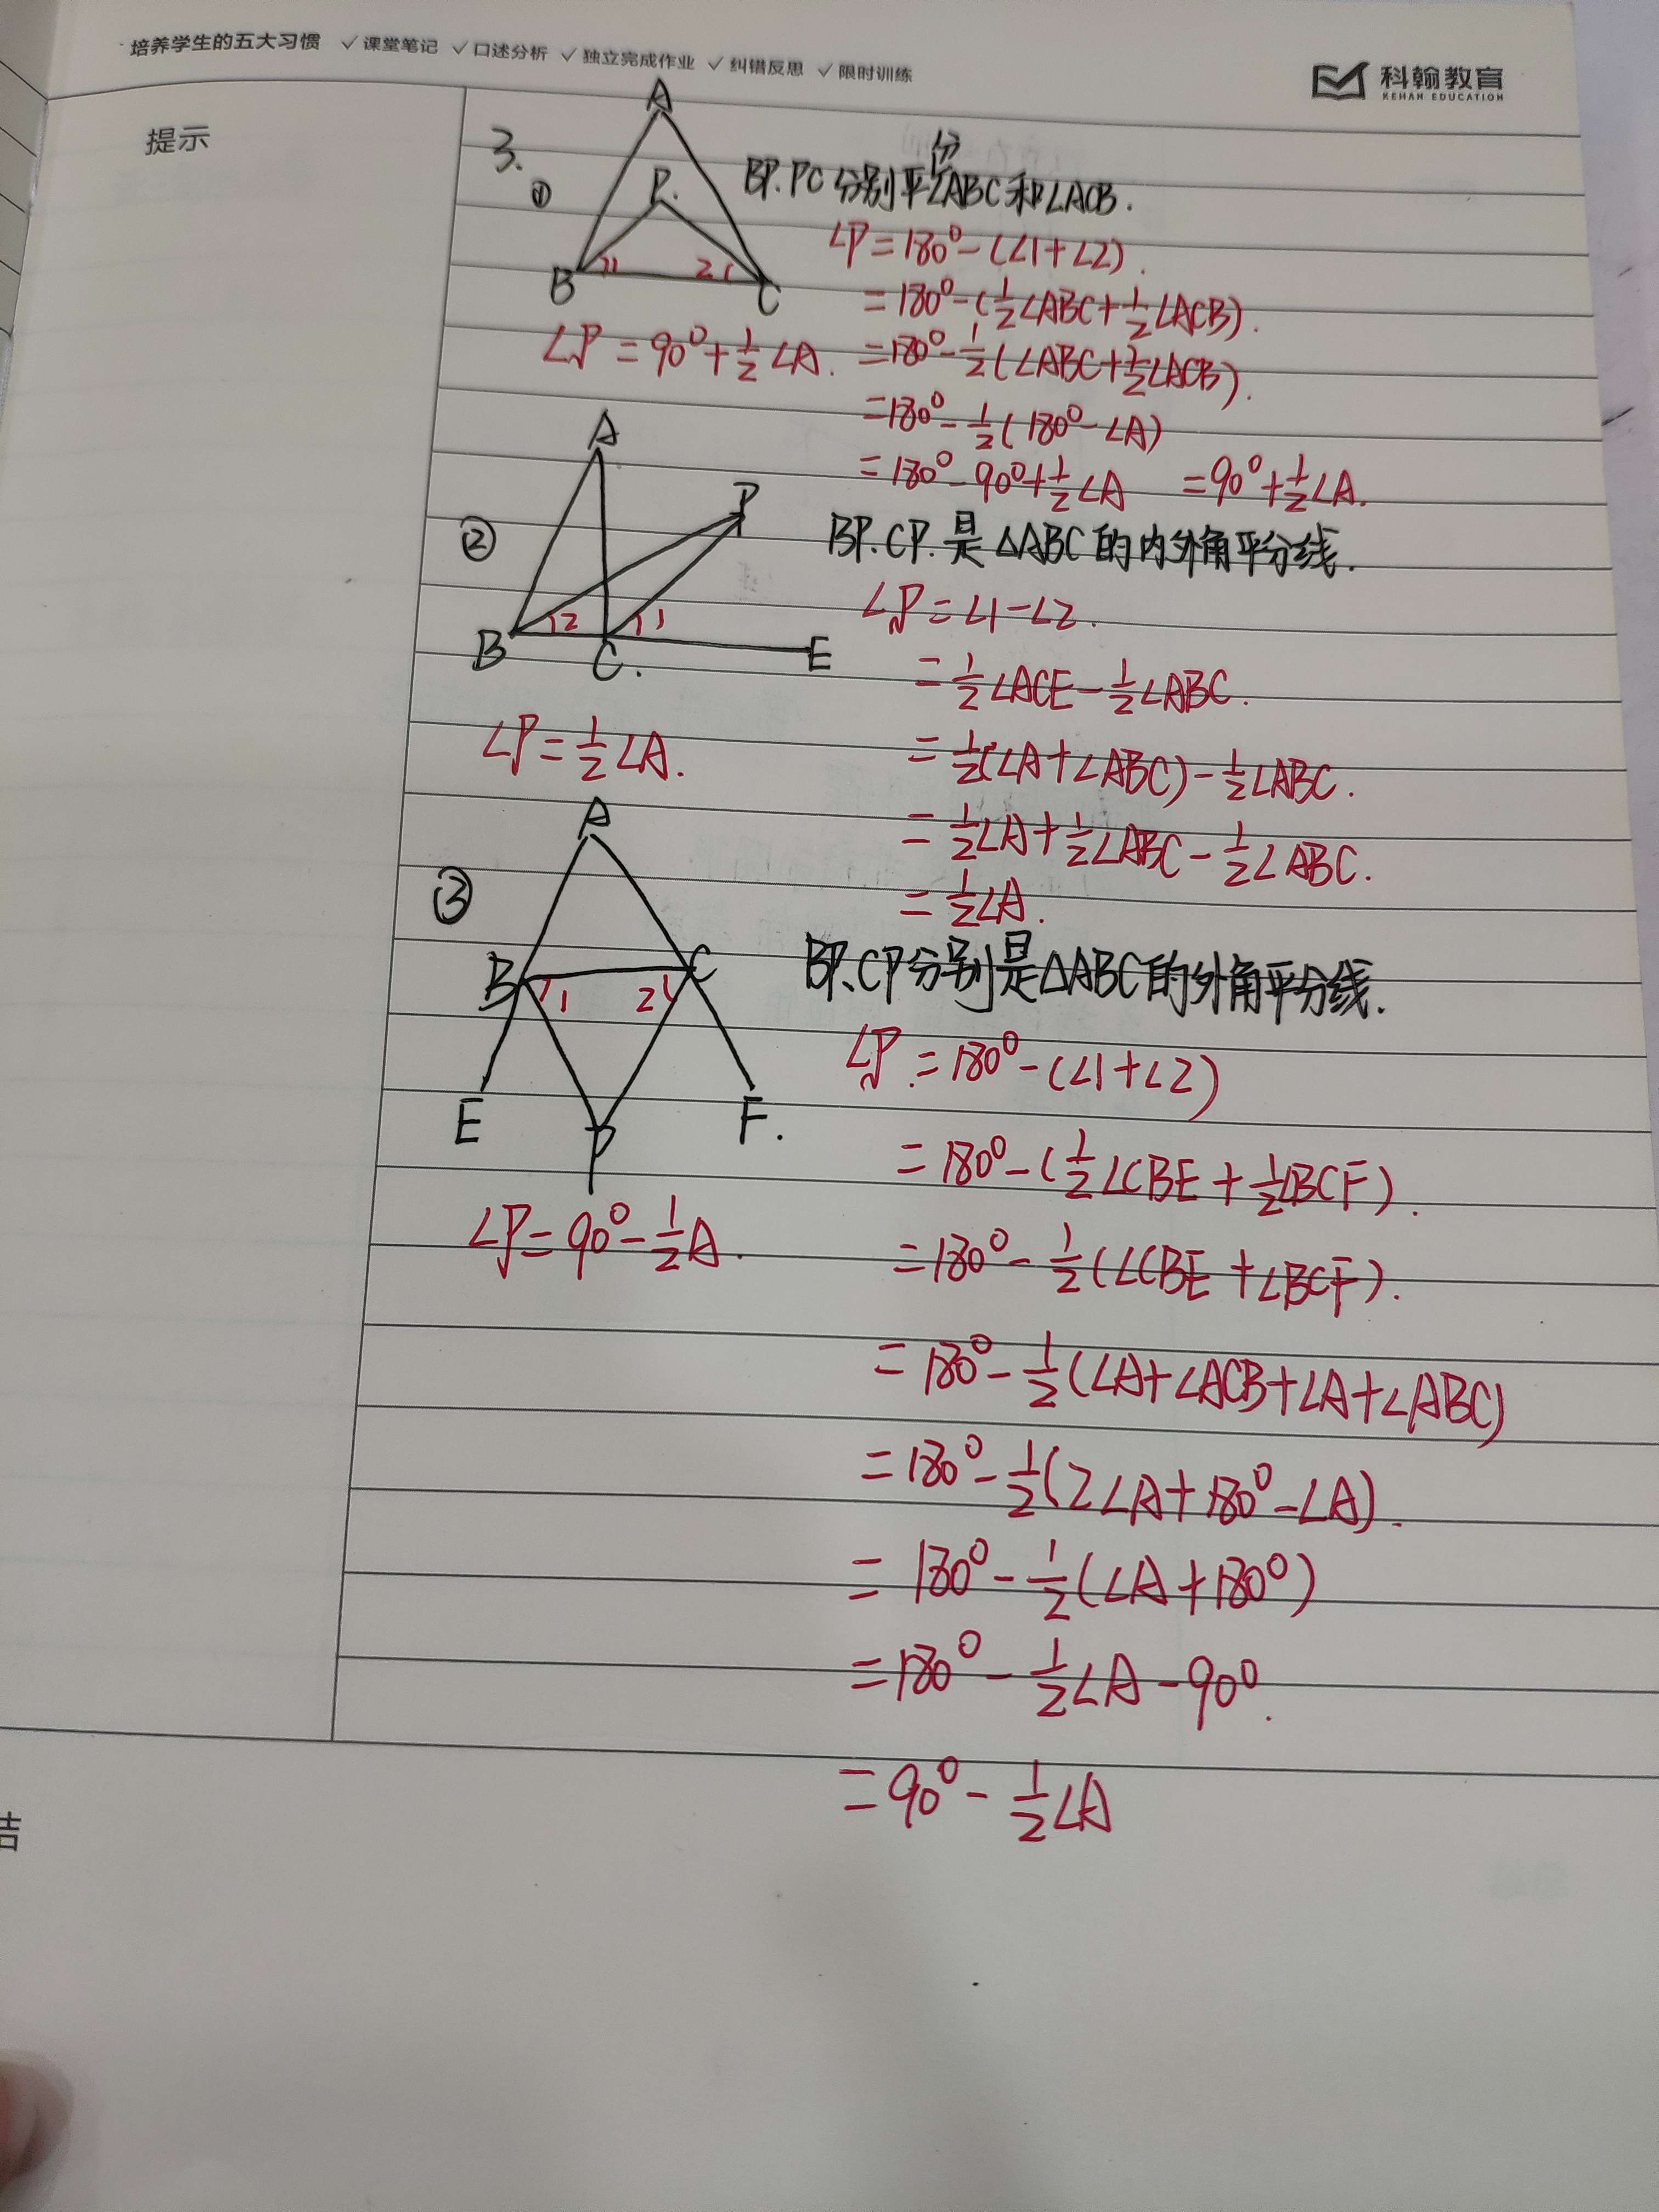 · 培养学生的五大习惯 ✓课堂笔记 ✓口述分析 ✓独立完成作业 ✓纠错反思 ✓限时训练
科翰教育
KEHAN EDUCATION
提示
3.
①
A
P.
B
1
2
C
分
BP.PC分别平∠ABC和∠ACB.
∠P=180°-(∠1+∠2).
=180°-(½∠ABC+½∠ACB).
∠P=90°+½∠A.
=180°-½(∠ABC+½∠ACB).
=180°-½(180°-∠A)
=180°-90°+½∠A =90°+½∠A.
②
A
P
B
2
1
C.
E
BP.CP.是△ABC的内外角平分线.
∠P=∠1-∠2.
=½∠ACE-½∠ABC.
∠P=½∠A.
=½(∠A+∠ABC)-½∠ABC.
=½∠A+½∠ABC-½∠ABC.
=½∠A.
③
A
B
1
2
C
E
P
F.
BP.CP分别是△ABC的外角平分线.
∠P=180°-(∠1+∠2)
=180°-(½∠CBE+½∠BCF).
∠P=90°-½A.
=180°-½(∠CBE+∠BCF).
=180°-½(∠A+∠ACB+∠A+∠ABC)
=180°-½(2∠A+180°-∠A).
=180°-½(∠A+180°)
=180°-½∠A-90°.
=90°-½∠A
结